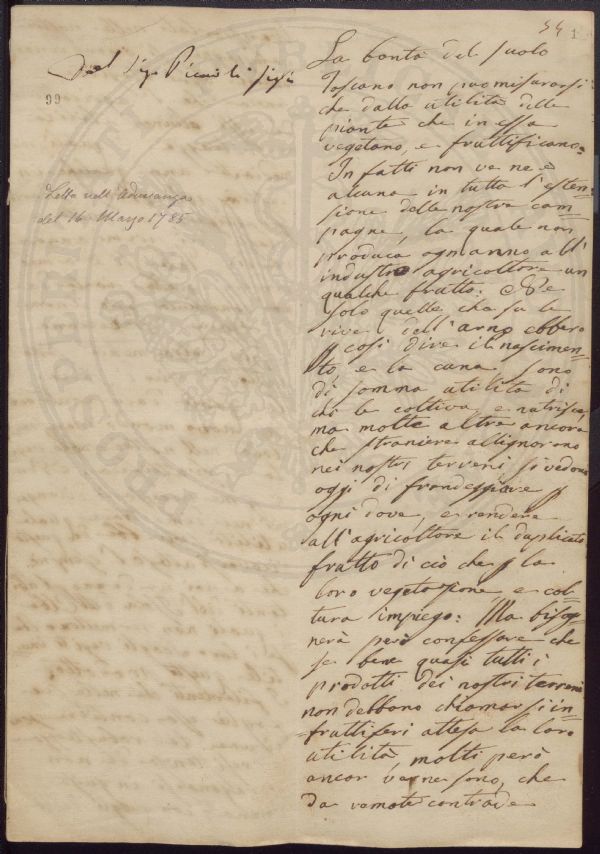 54 1
Del Sigr
99
Letta nell' Adunanza
del 16 Marzo 1785
La bontà del suolo
Toscano non può misurarsi
che dalla utilità delle
piante che in essa
vegetano, e fruttificano.
In fatti non ve ne è
alcuna in tutta l'esten=
sione delle nostre cam=
pagne, la quale non
produca ogn'anno all'
industre agricoltore un
qualche frutto. Ne
solo quelle che su le
rive dell'arno ebbero
p così dire il nascimen=
to, e la cuna sono
di somma utilità di
chi le coltiva, e nutrisce,
ma molte altre ancora
che straniere allignorono
nei nostri terreni si vedono
oggi di frondeggiare p
ogni dove, e rendere
all'agricoltore il duplicato
frutto di ciò che p la
loro vegetazione e col=
tura impiego: Ma bisog=
nerà però confessare che
se bene quasi tutti i
prodotti dei nostri terreni
non debbono chiamarsi in=
fruttiferi attesa la loro
utilità, molti però
ancor ve ne sono, che
da remote contrade